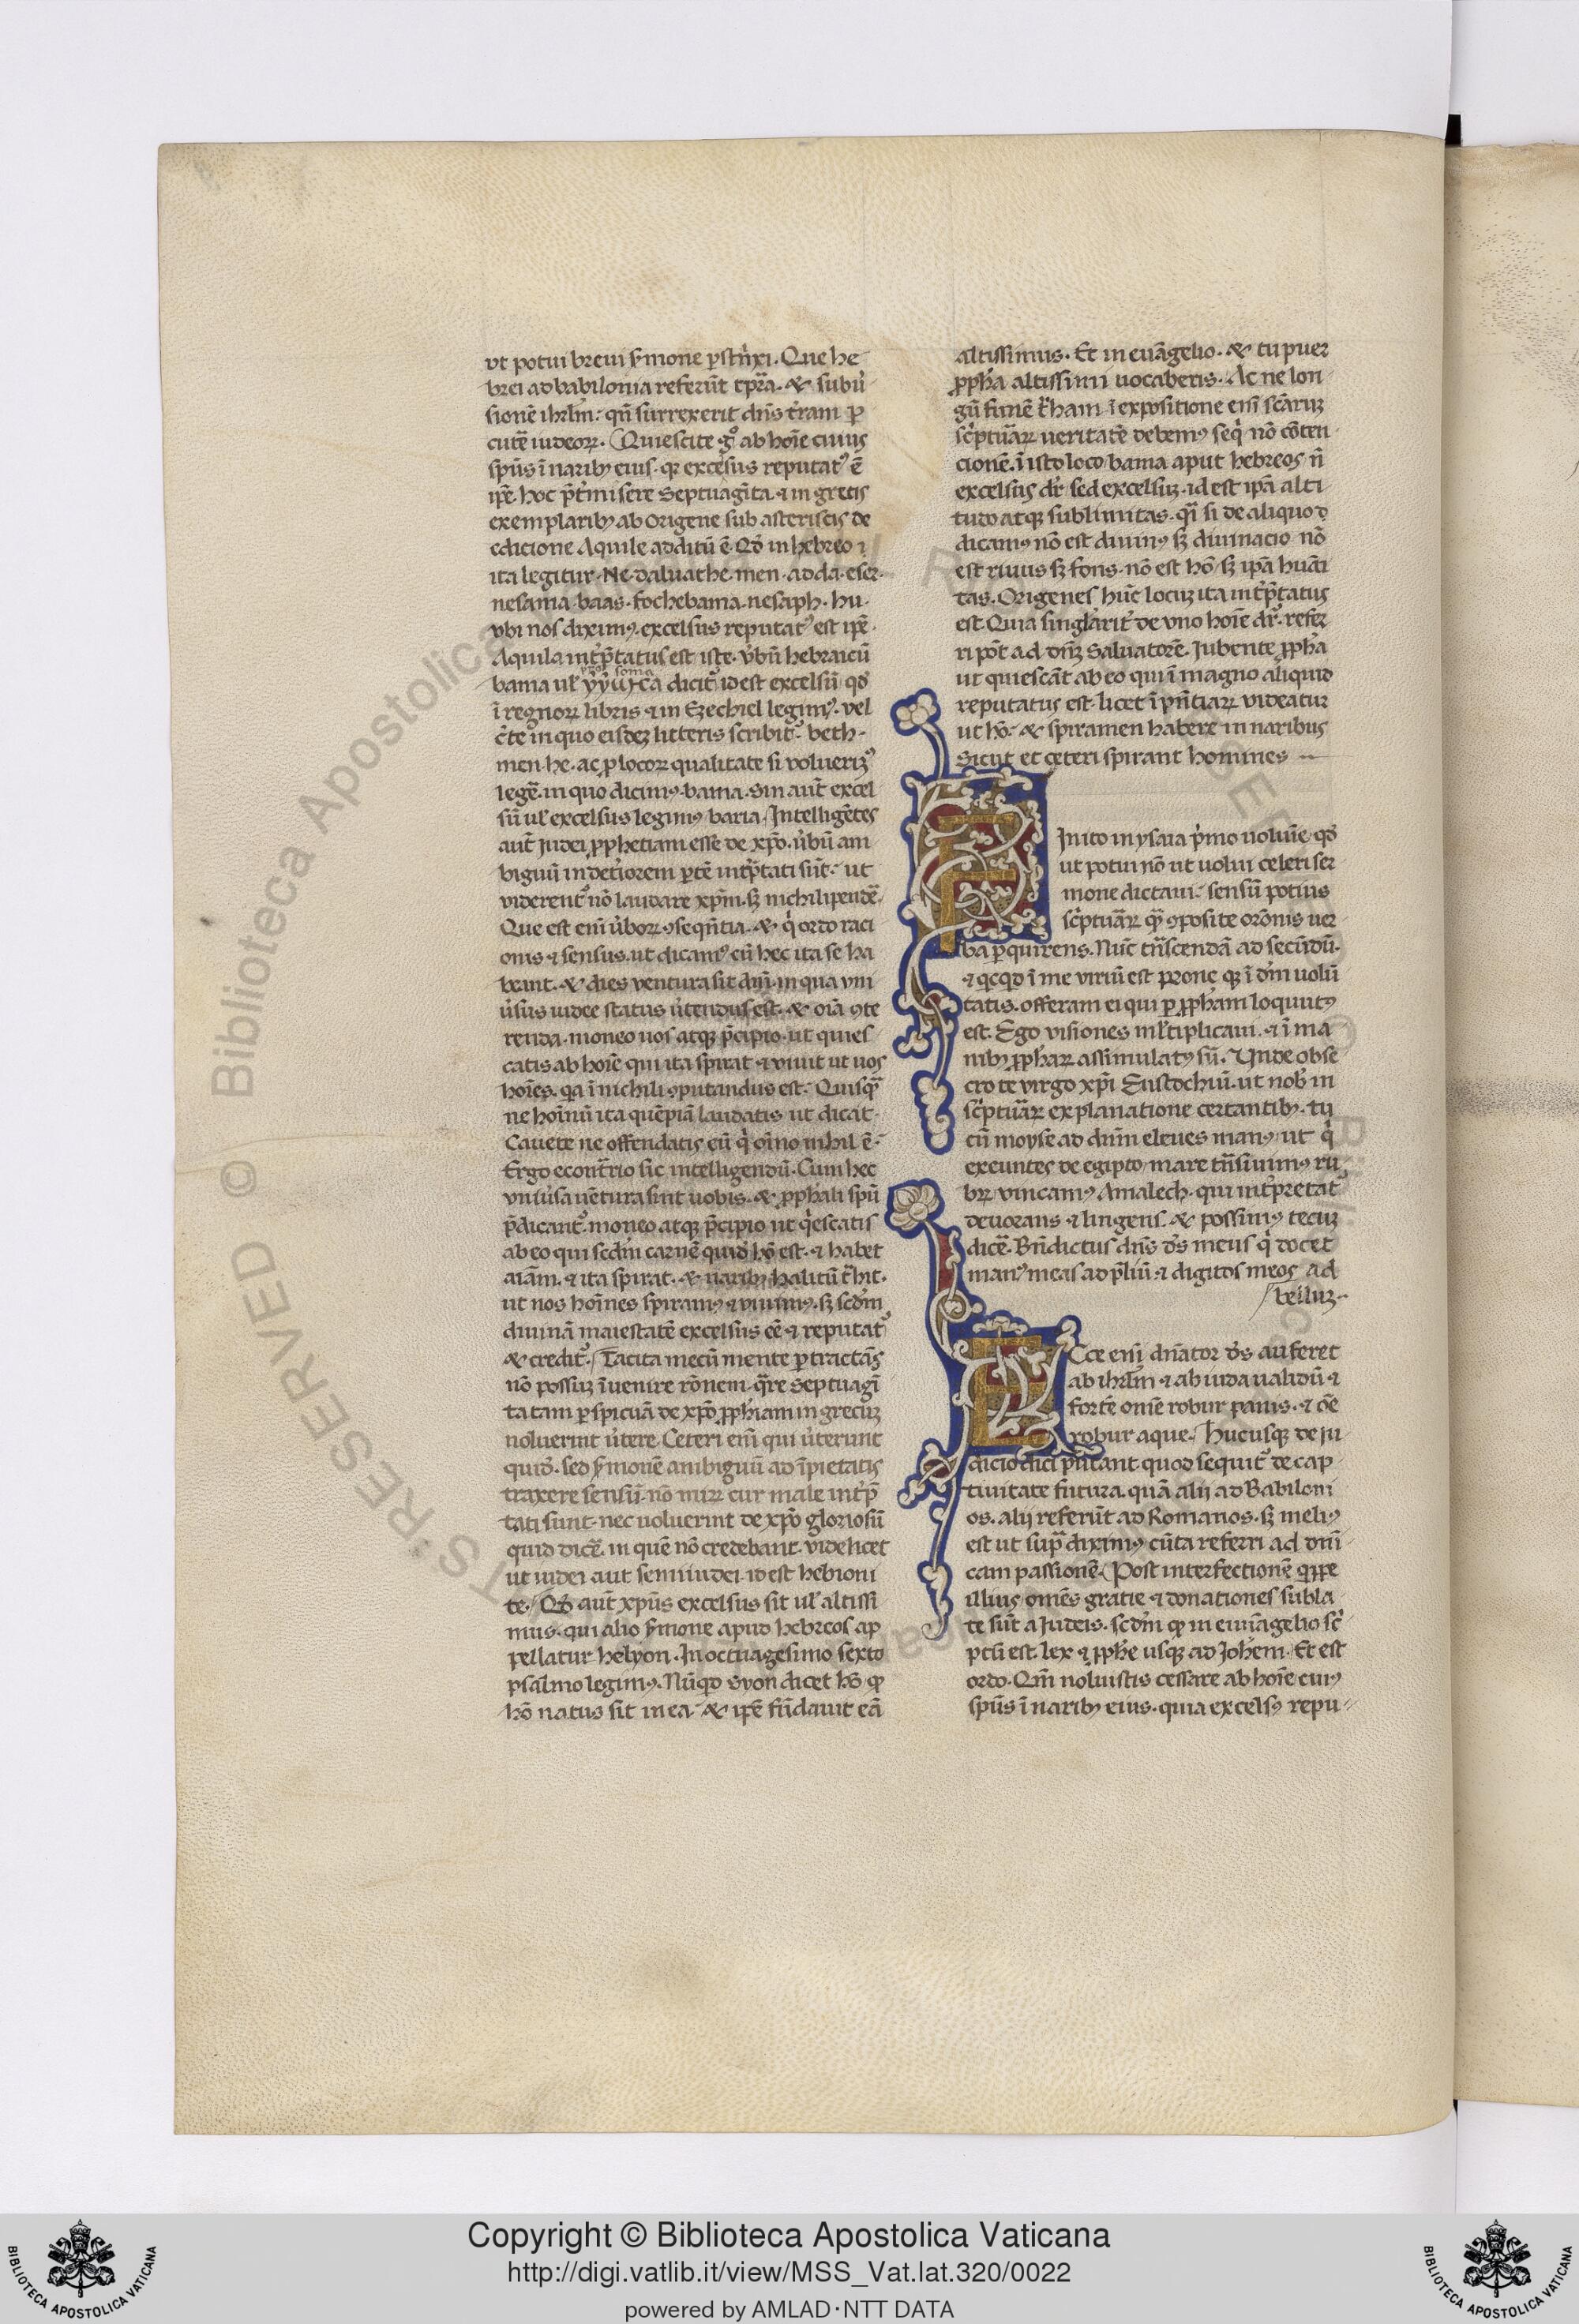 vt potui breui s̄mone ꝑstri̇̄xi. Que he
brei ad babilonia referūt tp̄ra. & subū
sionē ihrl̄m: qn̄ surrexerit dn̄s t̄ram ꝑ
cutē iudeoꝝ. Quiescite gͦ ab hoīe cuius
sp̄us ī narib; eius. qꝛ excelsus reputatꝰ ē
ip̄e. hoc p̄t̄misere Septuagīta. ⁊ in grecis
exemplarib; ab Origene sub asteriscis de
edicione Aquile additū ē. Qd̄ in hebreo
ita legitur. Ne. daluathe. men. adda. eser.
nesama. baas. fochebama. nesaph. hu.
vbi nos diximꝰ. excelsus reputatꝰ est ip̄e.
Aquila int̄p̄tatus est iste. v̄bū hebraicū
bama ul̄ dicit̄ id est excelsū qd̄
ī regnoꝝ libris ⁊ in Ezechiel legimꝰ. vel
c̄te in quo eisdeꝫ litteris scribit̄. beth.
men. he. ac ꝓ locoꝝ qualitate si voluerizꝰ
legē. in quo dicimꝰ. bama. Sin aut̄ excel
sū ul̄ excelsus legimꝰ baria. Intelligētes
aut̄ Iudei ꝓphetiam esse de xp̄o. v̄bū am
biguū in det̄iorem ꝑtē int̄p̄tati sūt: ut
viderent̄ nō laudare xp̄m. sꝫ nichilipendē.
Que est eni̅ v̄boꝝ ꝯseqn̄tia. & q̇ ordo raci
onis ⁊ sensus. ut dicamꝰ cū hec ita se ha
beant. & dies ventura sit dn̄i. in qua vni
v̄sus iudee status v̄tendus est. & oīa ꝯte
renda. moneo uos atqꝫ p̄cipio. ut quies
catis ab hoīe qui ita spirat ⁊ viuit ut uos
hoīes. qa ī nichili ꝯputandus est. Quisqͣ
ne hoīnū ita quēpiā laudatis ut dicat.
Cauete ne offendatis eū q̇ oīno nihil ē.
Ergo econt̄rio sic intelligendū. Cum hec
vniū̄sa uētura sint uobis. & ꝓph̄ali spū
p̄dicant̄. moneo atqꝫ p̄cipio ut q̇escatis
ab eo qui scd̄m carnē quid̄ hō est. ⁊ habet
aīam. ⁊ ita spirat. & narib; halitū t̄hit.
ut nos hoīnes spiramꝰ ⁊ viuimꝰ. sꝫ scd̄m
diuinā maiestatē excelsus eē ⁊ reputat̄
& credit̄. Tacita mecū mente ꝑtractās
nō possuꝫ īuenire rōnem. qͣre Septuagī
ta tam ꝑspicuā de xp̄o ꝓph̄iam in grecuꝫ
noluerint v̄tere. Ceteri eni̅ qui v̄terunt
quid̄. sed s̄monē ambiguū ad īpietatis
traxere sensū. nō miꝝ cur male int̄p̄
tati sunt. nec uoluerint de xp̄o gloriosū
quid dicē. in quē nō credebant. videlicet
ut iudei aut semiiudei. id est hebioni
te. Qd̄ aut̄ xp̄us excelsus sit ul̄ altissi
mus. qui alio s̄mone apud hebreos ap
pellatur helyon. In octuagesimo sexto
psalmo legimꝰ. Nūqd syon dicet hō ꝙ
hō natus sit in ea. & ip̄e fūdauit eā
altissimus. Et in euāgelio. & tu puer
ꝓph̄a altissimi uocaberis. Ac ne lon
gū fimē t̄ham ī expositione eni̅ scāꝝ
sc̄ptuāꝝ ueritatē debemꝰ seq̇ nō cōten
cionē. ī isto loco bama aput hebreos n̄
excelsus dr̄ sed excelsuꝫ. id est ip̄a alti
tudo atqꝫ sublimitas. qͣi si de aliquo d
dicamꝰ nō est diuinꝰ sꝫ diuinacio. nō
est riuus sꝫ fons. nō est hō sꝫ ip̄a huāi
tas. Origenes hūc locuꝫ ita int̄p̄tatus
est. Quia singlarit̄ de vno hoīe dr̄. refer
ri pōt ad dn̄ꝫ Saluatorē. Iubente ꝓph̄a
ut quiescāt ab eo qui ī magno aliquid
reputatus est. licet ī p̄n̄tiaꝝ videatur
ut hō. & spiramen habere in naribus
Sicut et ceteri spirant homines
Finito in ysaia p̄mo uolūīe. qd̄
ut potui nō ut uolui celeri ser
mone dictaui: sensū potius
sc̄ptuāꝝ qͣ ꝯposite orōnis uer
ba ꝑquirens. Nūc tn̄scendā ad secūdū.
⁊ qcqd ī me viriū est p̄cone qꝫ ī dm̄ uolū
tatis. offeram ei qui ꝑ ꝓph̄am loquutꝰ
est. Ego visiones ml̄tiplicaui. ⁊ ī ma
nib; ꝓph̄aꝝ assimulatꝰ sū. Vnde obse
cro te virgo xp̄i Eustochiū. ut nob̄ in
sc̄ptuāꝝ explanatione certantib;. tu
cū moyse ad dn̄m eleues manꝰ. ut q̇
exeuntes de egipto. mare tn̄siuimꝰ ru
bꝝ vincamꝰ Amalech. qui int̄pretat̄
deuorans ⁊ lingens. & possimꝰ tecuꝫ
dicē. Bn̄dictus dn̄s d̄s meus q̇ docet
manꝰ meas ad p̄liū. ⁊ digitos meos ad
belluꝫ.
Ecce eni̅ dn̄ator d̄s auferet
ab ihrl̄m ⁊ ab iuda ualidū ⁊
fortē omē robur panis. ⁊ oē
robur aque. Hucusqꝫ de iu
dicio dici putant. quod sequit̄ de cap
tiuitate futura. quā alii ad Babiloni
os. alij referūt ad Romanos. sꝫ meliꝰ
est ut supͣ diximꝰ cūta referri ad dn̄i
cam passionē. Post interfectionē qꝑpe
illius omēs gratie ⁊ donationes subla
te sūt a Iudeis. scd̄m ꝙ in euuāgelio sc̄
ptū est. lex ⁊ ꝓph̄e usqꝫ ad Ioh̄em. Et est
ordo. Qm̄ noluistis cessare ab hoīe cuiꝰ
sp̄us ī narib; eius. quia excelsꝰ repu-
Copyright © Biblioteca Apostolica Vaticana
http://digi.vatlib.it/view/MSS_Vat.lat.320/0022
powered by AMLAD·NTT DATA